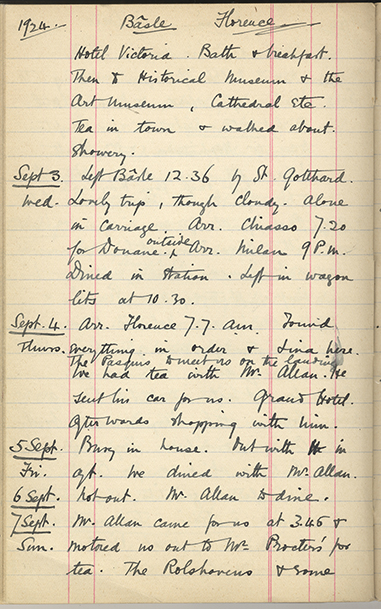 1924. Bâsle Florence
Hotel Victoria. Bath & breakfast.
Then to Historical Museum & the
Art Museum, Cathedral etc.
Tea in town & walked about.
Showery.
Sept 3. Left Bâsle 12.36 by St. Gotthard.
Wed. Lovely trip, though cloudy. Alone
in carriage. Arr. Chiasso 7.20
for Douane. outside Arr. Milan 9 P.m.
Dined in station. Left in wagon
lits at 10.30.
Sept. 4. Arr. Florence 7.7. am. Found
Thurs. everything in order & Lina here.
The Pasquis to meet us on the landing
We had tea with Mr. Allan. He
sent his car for us. Grand Hotel.
Afterwards shopping with him.
5 Sept. Busy in house. Out with in
Fri. aft. We dined with Mr. Allan.
6 Sept. Not out. Mr. Allan to dine.
7 Sept. Mr. Allan came for us at 3.45 &
Sun. motored us out to Mrs Procter's for
tea. The Rolshovens & some